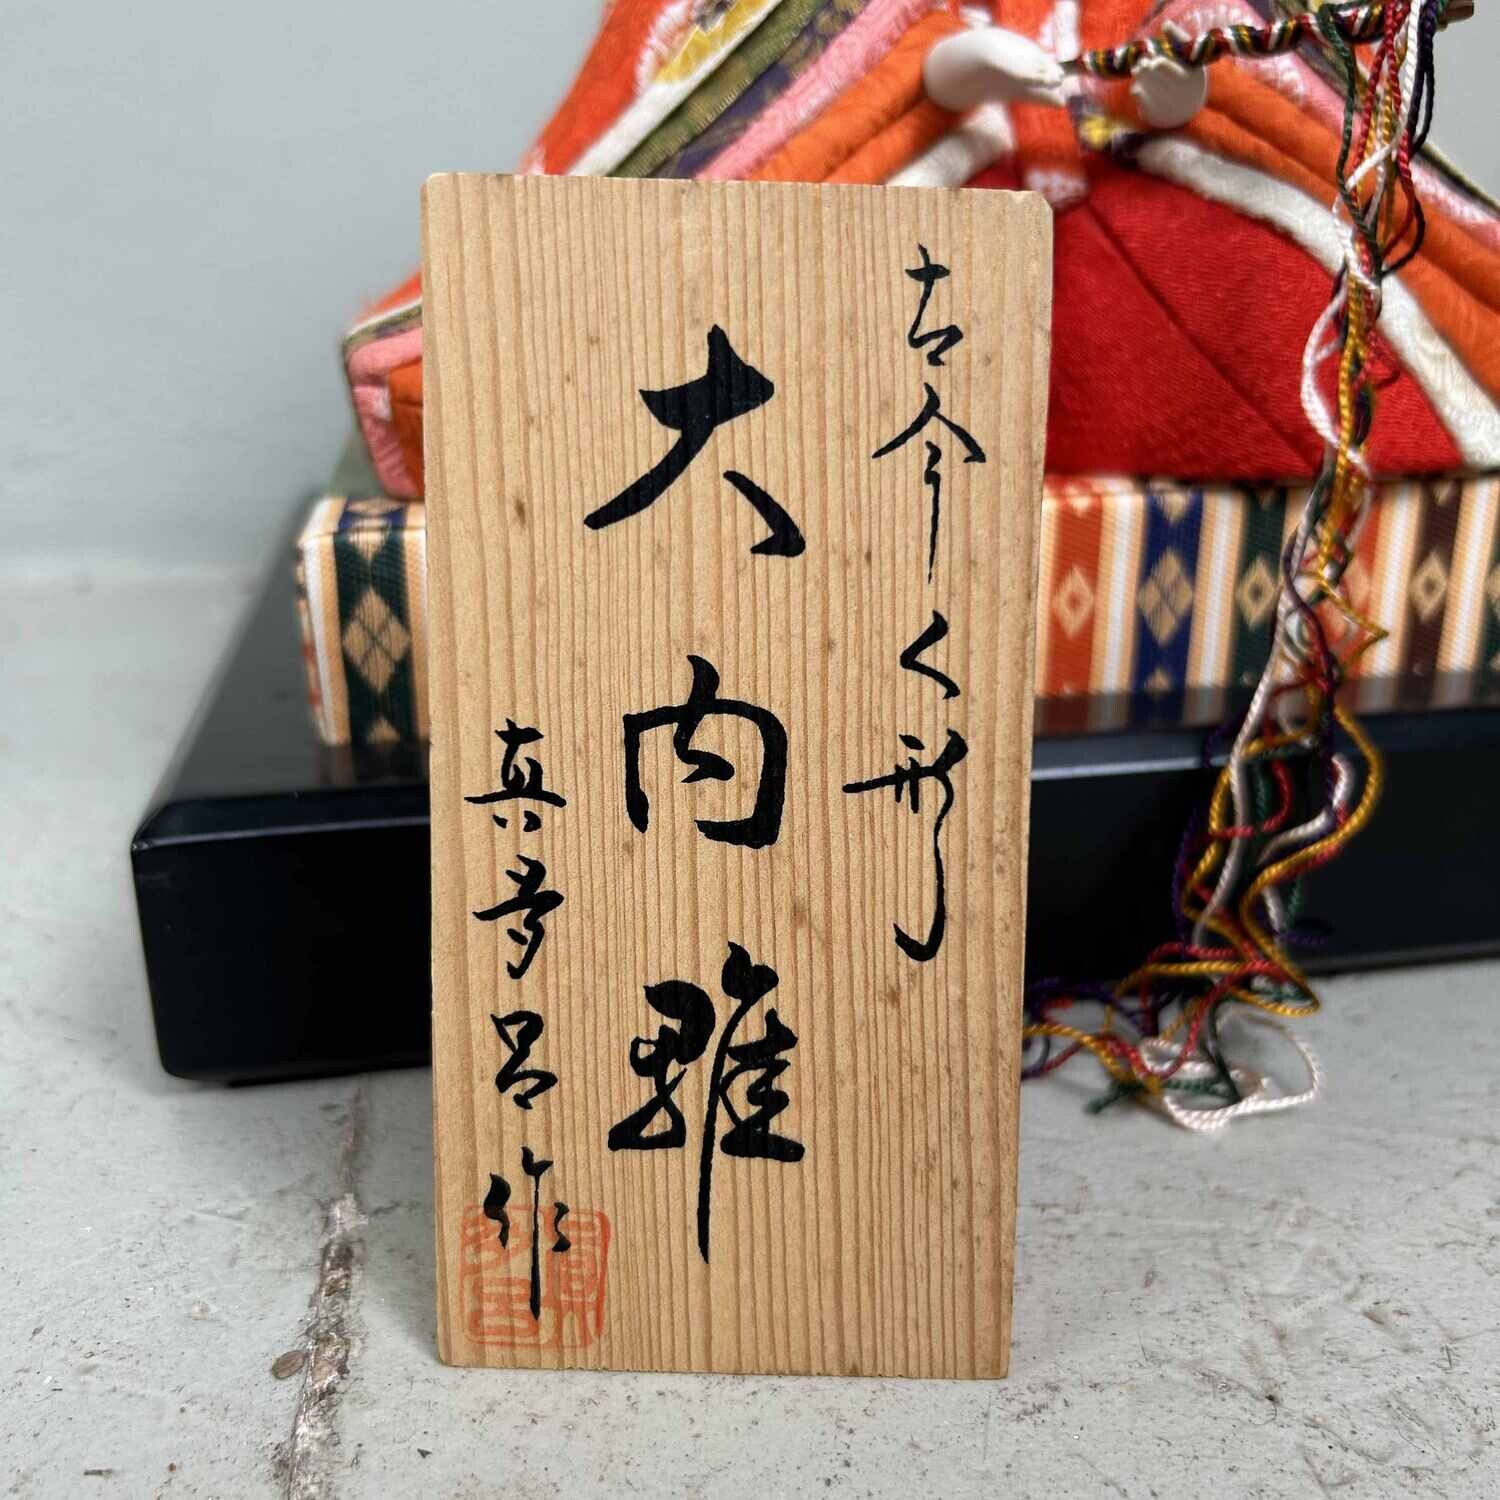 古今人形
大内雛
真多呂作